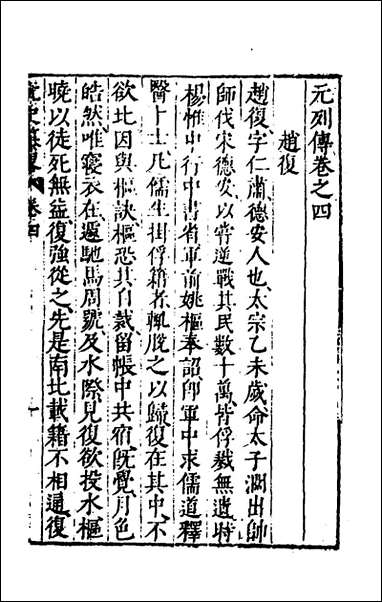 元列傳卷之四
趙復
趙復、字仁肅、德安人也、太宗乙未歲、命太子濶出帥
師伐宋德安、以嘗逆戰其民數十萬、皆俘戮無遺、時
楊惟中行中書省軍前姚樞奉詔卽軍中求儒道釋
醫卜士、凡儒生掛俘籍者、輒脫之以歸、復在其中、不
欲北因與樞訣樞恐其自裁留帳中共宿、旣覺、月色
皓然唯寢衣在、遽馳馬周號及水際、見復欲投水、樞
曉以徒死無益、復強從之、先是南北載籍不相通、復
卷四